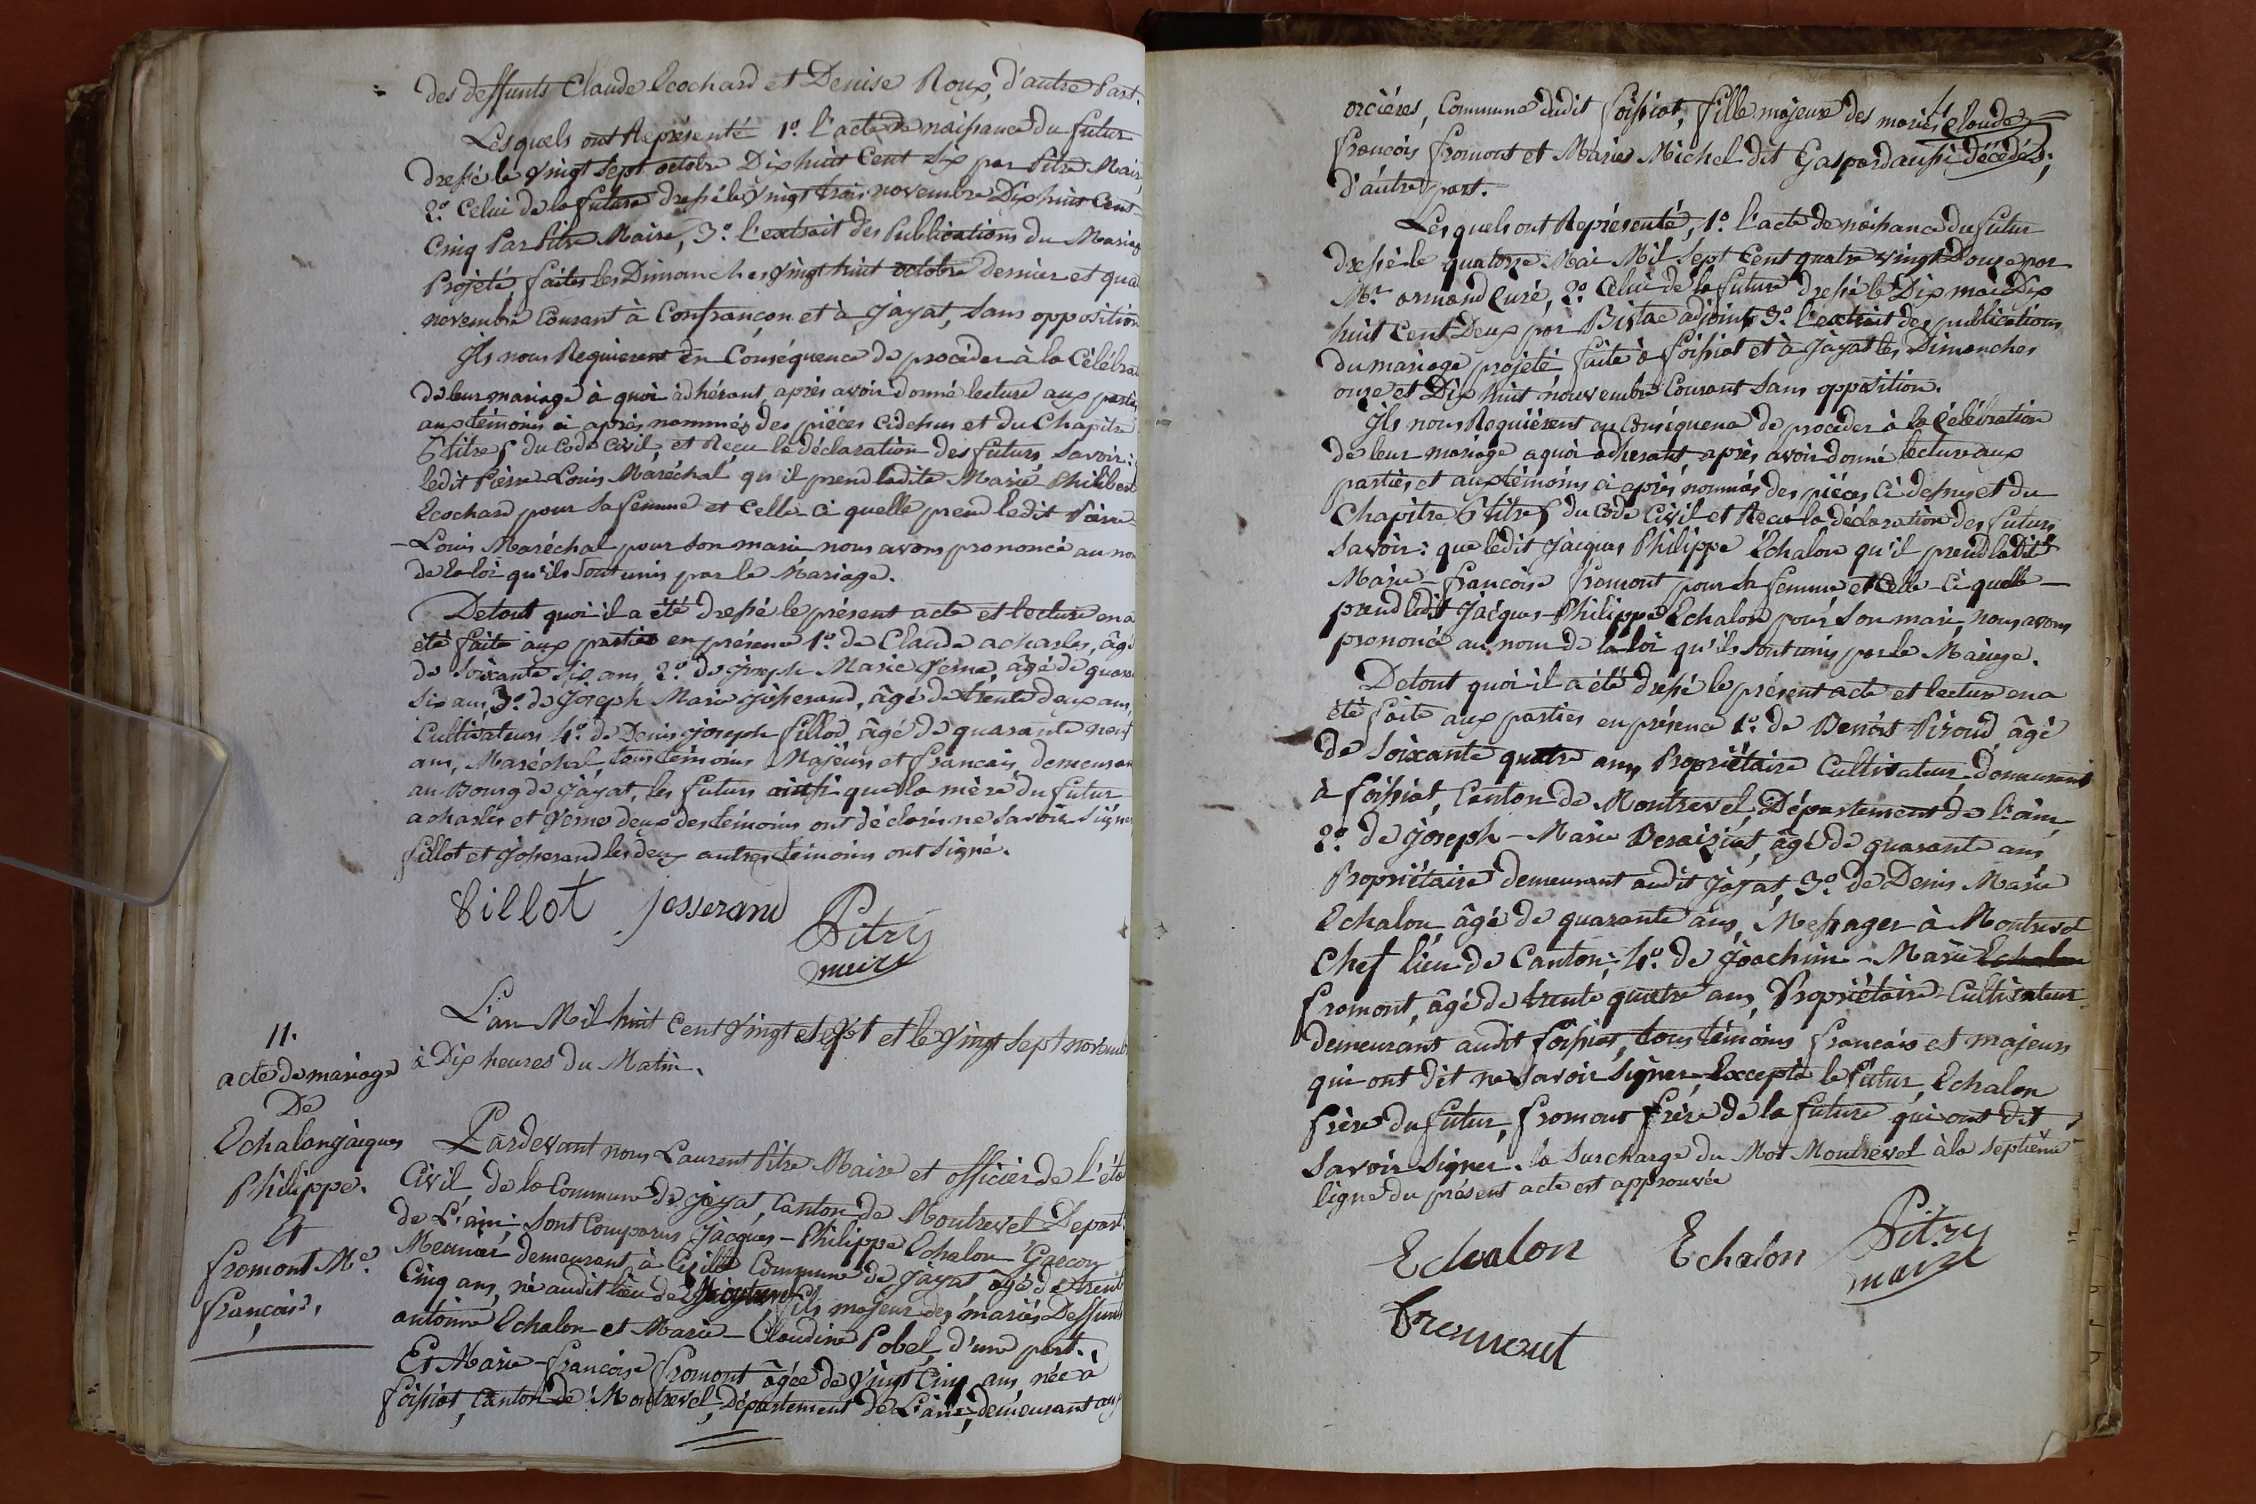 des deffunts Claude Ecochard et Denise Roux, d'autre Part.
Lesquels ont Représenté 1.o l'acte de naissance du futur
dressé le vingt sept octobre Dix huit Cent six par Pitre Maire,
2.o Celui de la future dressé le vingt trois novembre Dix huit Cent
Cinq Par Pitre Maire, 3.o l'extrait des Publications du Mariag
Projeté, faites les Dimanches vingt huit octobre dernier et qua
novembre Courant à Confrançon et à Jayat, sans opposition
Ils nous Requierent en Conséquence de procéder à la Célébra
de leur mariage à quoi adhérant, après avoir donné lecture aux parties
aux témoins ci après nommés des pièces cidessus et du Chapitre
6 titre 5 du Code Civil, et Reçu la déclaration des futurs, savoir:
ledit Pierre Louis Maréchal qu'il prend ladite Marie Philibert
Ecochard pour sa femme et Celle-ci quelle prend ledit Pierre
-Louis Maréchal pour son mari, nous avons prononcé au nom
de la loi qu'ils sont unis par le Mariage.
De tout quoi il a été dressé le présent acte et lecture en a
été faite aux parties en présence 1.o de Claude acharles, âgé
de soixante six ans, 2.o de joseph Marie Verne, âgé de quara
six ans, 3.o de Joseph Marie Josserand, âgé de trente deux ans,
Cultivateurs 4.o de Denis joseph fillod âgé de quarante neuf
ans, Maréchal tous témoins Majeurs et français, demeuran
au Bourg de Jayat, les futurs ainsi que la mère du futur
acharles et Verne deux des témoins ont déclarés ne savoir signer
fillot et Josserand les deux autres témoins ont signé.
fillot Josserand Pitre
maire
L'an Mil huit Cent vingt et sept et le vingt sept novemb
à Dix heures du Matin.
11.
acte de mariage
De
Echalon jacques
Philippe.
Et
fromont M.e
françoise,
Pardevant nous Laurent Pitre Maire et officier de l'éta
Civil de la Commune de Jayat, Canton de Montrevel Depart
de L'ain; sont Comparus Jacques-Philippe Echalon Garçon
Meunier demeurant à Commune de Jayat âgé de trent
Cinq ans, né audit lieu de fils majeur des mariés Deffunts
antoine Echalon et Marie-Claudine Pobel, d'une part.
Et Marie-françoise fromont âgée de vingt Cinq ans, née à
foissiat, Canton de Montrevel, Département de L'ain, demeurant aux
orcières, Commune dudit foissiat, fille majeure des mariés Claude
françois fromont et Marie Michel dit Gaspard aussi décédés;
d'autre part.
Lesquels ont Représenté, 1.o l'acte de naissance du futur
dressé le quatorze Mai Mil sept Cent quatre vingt Douze par
M.r armand Curé, 2.o Celui de la future dressé le Dix mai Dix
huit Cent Deux par adjoint 3.o l'extrait des publications
du mariage projeté, faite à foissiat et à Jayat les Dimanches
onze et Dix huit nouvembre Courant sans opposition.
Ils nous Requièrent en Conséquence de procéder à la Célébration
de leur mariage a quoi adherant après avoir donné lecture aux
parties et aux témoins ci après nommés des pièces Ci dessus et du
Chapitre 6 titre 5 du Code Civil et Reçu la déclaration des futurs
savoir: que ledit Jacques Philippe Echalon qu'il prend ladite
Marie-françoise fromont pour sa femme et Celle-ci quelle
prend ledit Jacques-Philippe Echalon pour son mari, nous avons
prononcé au nom de la loi qu'ils sont unis par le Mariage.
De tout quoi il a été dressé le présent acte et lecture en a
été faite aux parties en présence 1.o de Benoit Piroud âgé
de soixante quatre ans, Propriétaire Cultivateur, demeurant
à foissiat, Canton de Montrevel, Département de l'ain,
2.o de joseph-Marie âgé de quarante ans,
Propriétaire demeurant audit Jayat, 3.o de Denis Marie
Echalon, âgé de quarante ans, Messager à Montrevel
Chef lieu de Canton; 4.o de Joachim-Marie Echalon
fromont, âgé de trente quatre ans, Propriétaire-Cultivateur
demeurant audit foissiat, tous témoins français et majeurs
qui ont dit ne savoir signer, Excepté le futur, Echalon
frère du futur, fromont frère de la future qui ont dit
savoir signer. la surcharge du Mot Montrevel à la septième
ligne du présent acte est approuvée
Echalon Echalon Pitre
maire
fremont